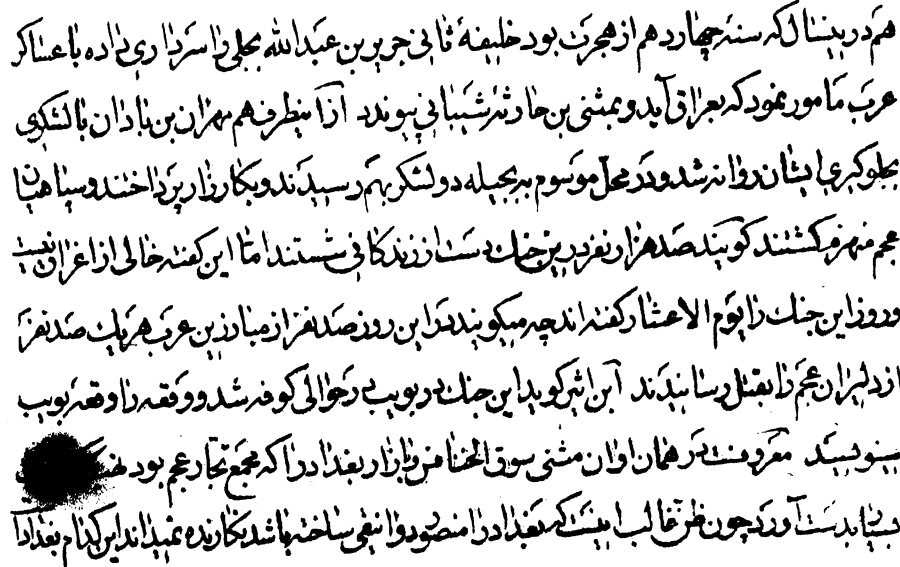 هم در بینسال که سنهٔ چهاردهم از هجرت بود خلیفهٔ ثانی جریر بن عبدالله بجلی را سرداری داده با عساکر
عرب مامور نمود که بعراق آید و بمثنی بن حارثه شیبانی پیوندد از آنطرف هم مهران بن باذان با لشکری
بجلوگیری ایشان روانه شد و در محل موسوم به بجیله دو لشکر بهم رسیدند و بکارزار پرداختند و سپاهیان
عجم منهزم گشتند گویند صد هزار نفر در ین جنك دست از زندگانی شستند اما این گفته خالی از اغراق نیست
و روز این جنك را یوم الاعشار گفته اند چه میگویند در این روز صد نفر از مبارزین عرب هر یك صد نفر
از دلیران عجم را بقتل رسانیدند ابن اثیر گوید این جنك در بویب در حوالی کوفه شد و وقعه را وقعهٔ بویب
مینویسد معروفست در همان اوان مثنی سوق الخنافس و بازار بغداد را که مجمع تجار عجم بود
بسیا بدست آورد چون ظن غالب اینست که بغداد را منصور دوانیقی ساخته باشد نگارنده نمیداند این کدام بغداد